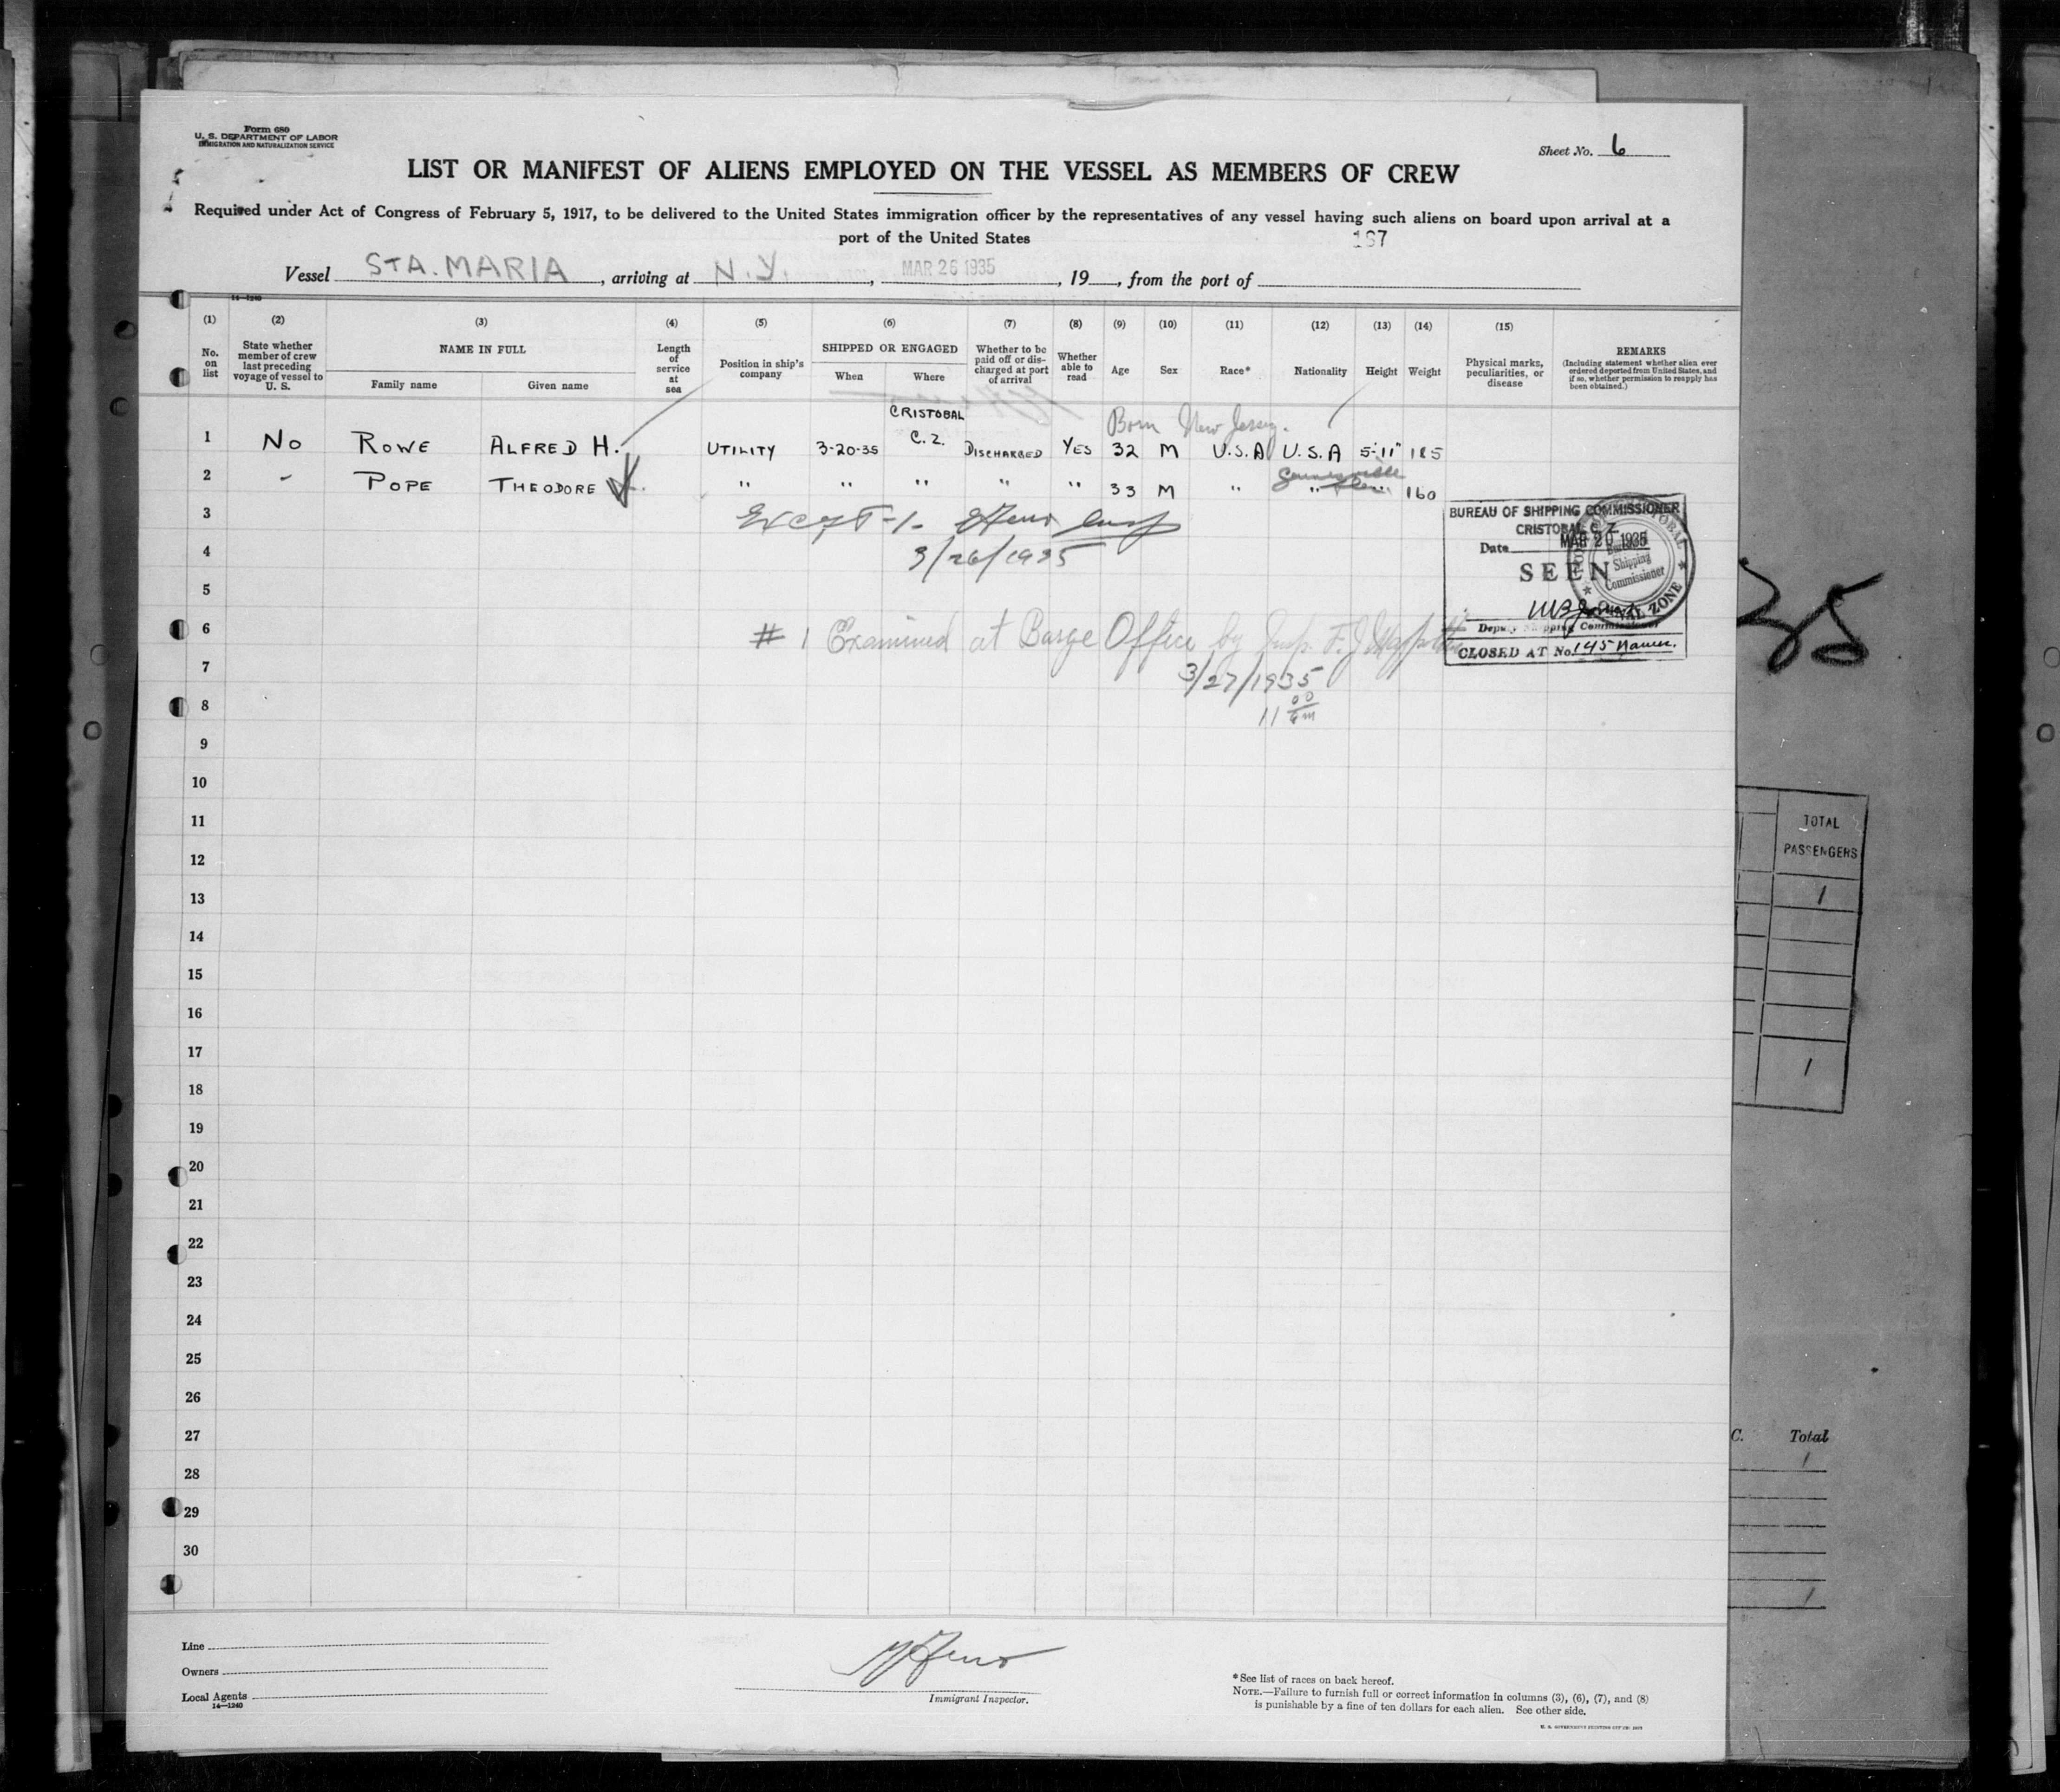 Form 680
U. S. DEPARTMENT OF LABOR
IMMIGRATION AND NATURALIZATION SERVICE
Sheet No. 6
LIST OR MANIFEST OF ALIENS EMPLOYED ON THE VESSEL AS MEMBERS OF CREW
Required under Act of Congress of February 5, 1917, to be delivered to the United States immigration officer by the representatives of any vessel having such aliens on board upon arrival at a
port of the United States
187
Vessel STA. MARIA, arriving at N.Y., MAR 26 1935, 19, from the port of
14—1240
(1) (2) (3) (4) (5) (6) (7) (8) (9) (10) (11) (12) (13) (14) (15)
No. on list
State whether member of crew last preceding voyage of vessel to U. S.
NAME IN FULL
Family name Given name
Length of service at sea
Position in ship's company
SHIPPED OR ENGAGED
When Where
Whether to be paid off or discharged at port of arrival
Whether able to read
Age Sex Race* Nationality Height Weight
Physical marks, peculiarities, or disease
REMARKS
(Including statement whether alien ever ordered deported from United States, and if so, whether permission to reapply has been obtained.)
CRISTOBAL
Born New Jersey.
1 No ROWE ALFRED H. UTILITY 3-20-35 C. Z. DISCHARGED YES 32 M U.S.A U.S.A 5'-11" 185
2 " POPE THEODORE " " " " " 33 M " " " 160
3 Except -1-
4 3/26/1935
5
6 # 1 Examined at Barge Office by Insp. F. J.
7 3/27/1935
8 11 00 am
9
10
11
12
13
14
15
16
17
18
19
20
21
22
23
24
25
26
27
28
29
30
BUREAU OF SHIPPING COMMISSIONER
CRISTOBAL C. Z.
Date MAR 20 1935
SEEN
Deputy Shipping Commissioner
CLOSED AT No. 145 Names.
Shipping
Commissioner
CANAL ZONE
35
TOTAL
PASSENGERS
1
1
C. Total
1
1
Line
Owners
Local Agents
14—1240
Immigrant Inspector.
*See list of races on back hereof.
NOTE.—Failure to furnish full or correct information in columns (3), (6), (7), and (8)
is punishable by a fine of ten dollars for each alien. See other side.